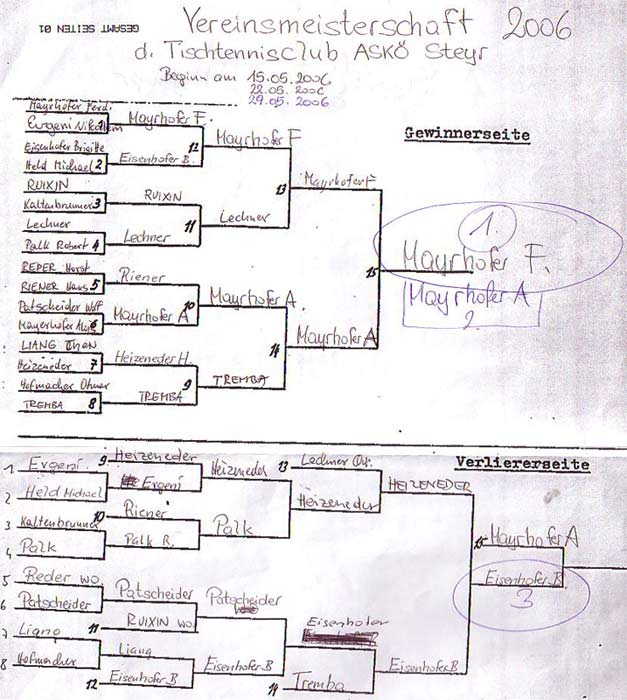 GESAMT SEITEN 01
Vereinsmeisterschaft 2006
d. Tischtennisclub ASKÖ Steyr
Beginn am 15.05.2006
22.05.2006
29.05.2006
Gewinnerseite
Mayrhofer Ferd.
1
Evgeni
Mayrhofer F.
Eisenhofer Brigitte
Held Michael 2
Eisenhofer B.
12
Mayrhofer F
RUIXIN
Kaltenbrunner 3
RUIXIN
Lechner
Palk Robert 4
Lechner
11
Lechner
13
Mayrhofer F
REDER Horst
RIENER Hans 5
Riener
Patscheider Wolf
6
Mayrhofer A
10
Mayrhofer A.
LIANG Chen
Heizeneder 7
Heizeneder H.
Hofmacher Otmar
TREMBA 8
TREMBA
9
TREMBA
14
Mayrhofer A
15
1.
Mayrhofer F.
Mayrhofer A
2.
Verliererseite
1 Evgeni
2 Held Michael
3 Kaltenbrunner
4 Palk
5 Reder wo.
6 Patscheider
7 Liang
8 Hofmacher
9 Heizeneder
Evgeni
10 Riener
Palk R.
Patscheider
11 RUIXIN wo.
Liang
12 Eisenhofer B
Heizeneder
Palk
Patscheider
Eisenhofer B
13 Lechner
Heizeneder
Eisenhofer
14 Tremba
HEIZENEDER
Eisenhofer B
15 Mayrhofer A
Eisenhofer B
3